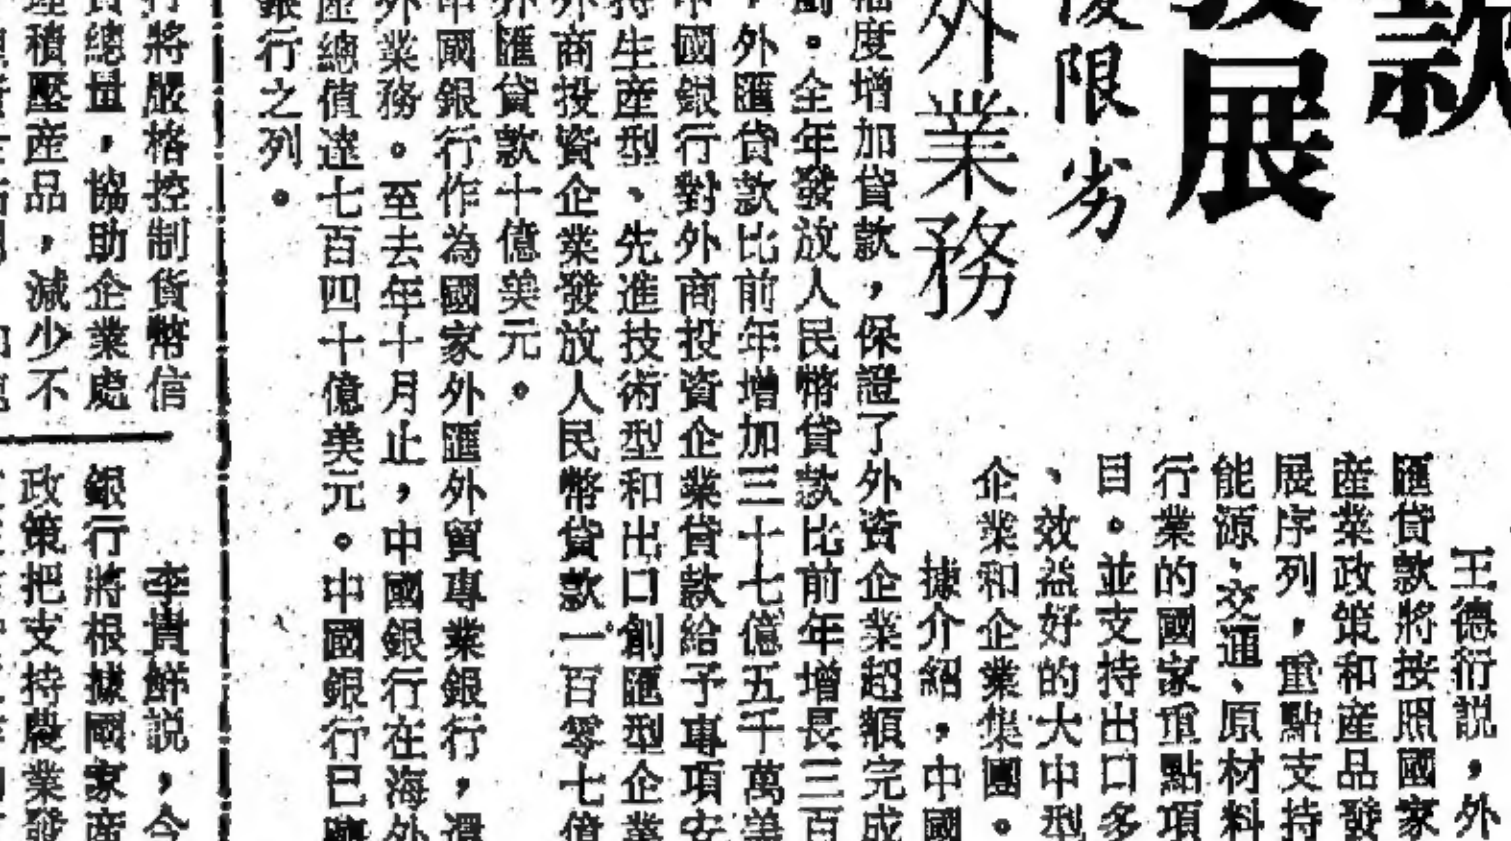 款
發展
後限劣
外業務
王德衍説，外
匯貸款將按照國家
産業政策和産品發
展序列，重點支持
能源、交通、原材料
行業的國家重點項
目。並支持出口多
、效益好的大中型
企業和企業集團。
據介紹，中國
幅度增加貸款，保證了外資企業超額完成
。全年發放人民幣貸款比前年增長三百
，外匯貸款比前年增加三十七億五千萬美
中國銀行對外商投資企業貸款給予專項安
持生産型、先進技術型和出口創匯型企業
外商投資企業發放人民幣貸款一百零七億
外匯貸款十億美元。
中國銀行作為國家外匯外貿專業銀行，還
外業務。至去年十月止，中國銀行在海外
産總值達七百四十億美元。中國銀行已躋
銀行之列。
行將嚴格控制貨幣信
貸總量，協助企業處
理積壓産品，減少不
李貴鮮説，今
銀行將根據國家産
政策把支持農業發